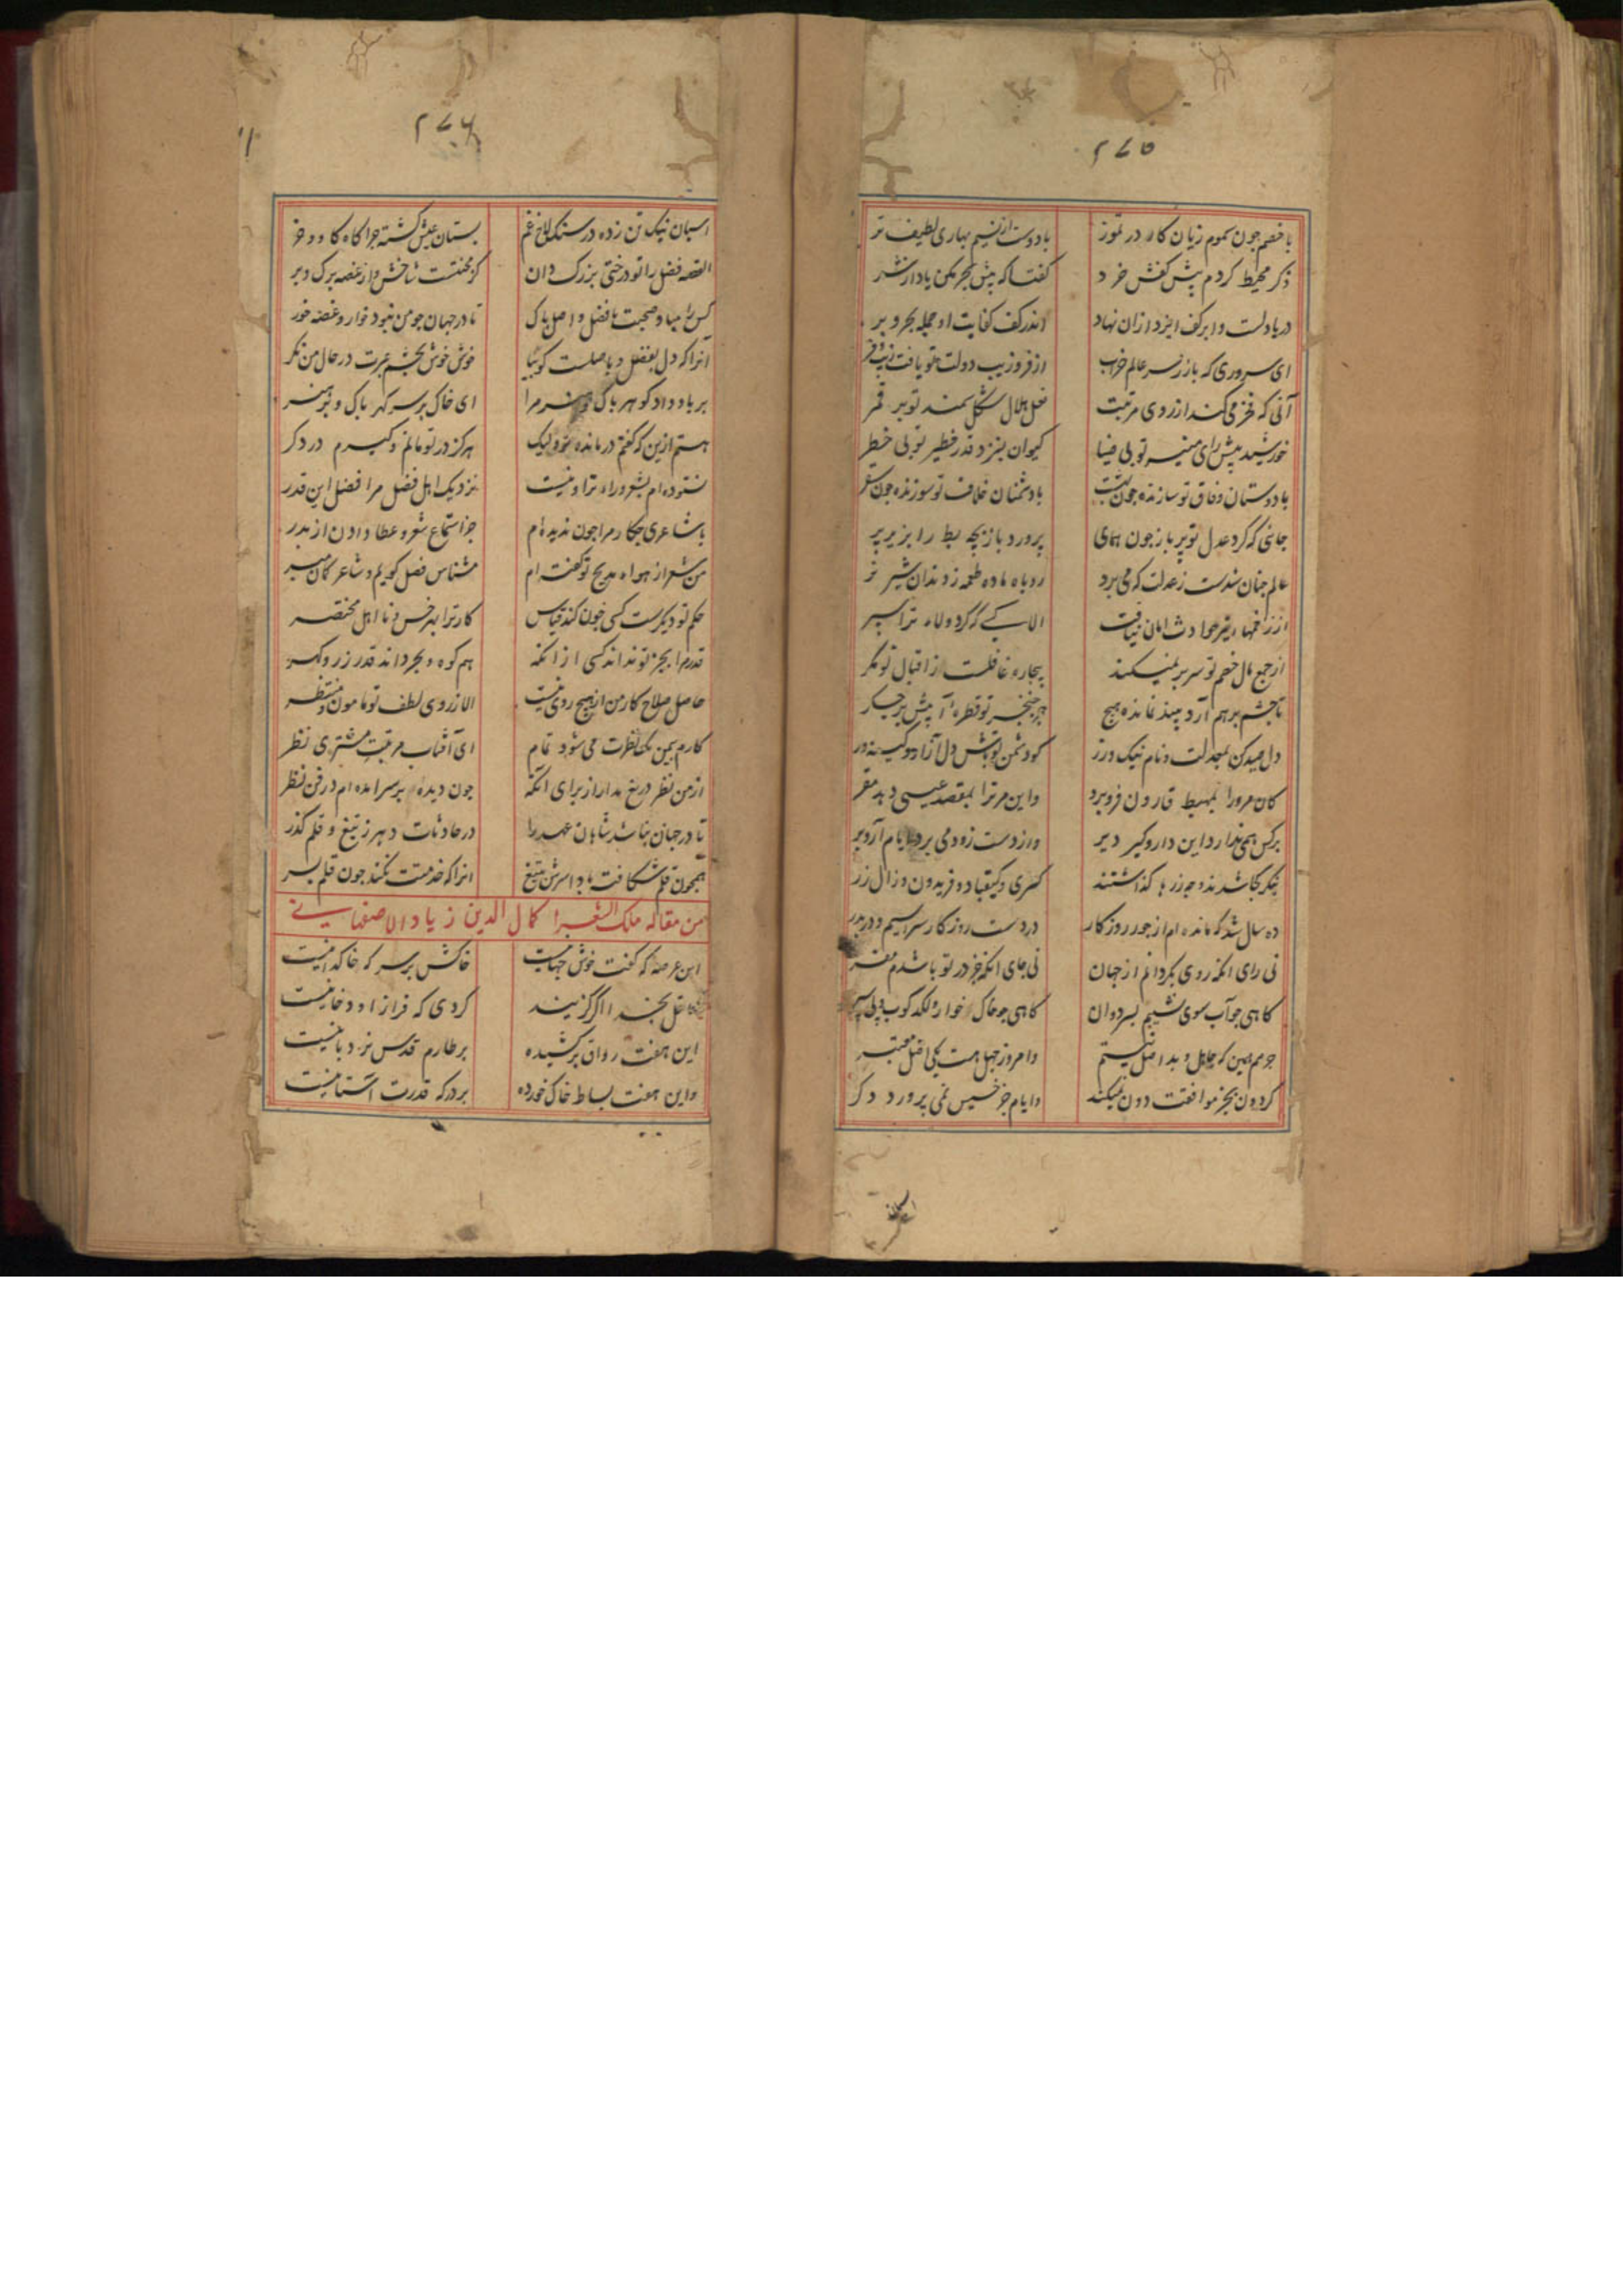 ۲۷۵
با خصم چون سموم زیان کار در تموز
با دوست از نسیم بهاری لطیف تر
ذکر محیط کردم پیش کفش خرد
کفتا که پیش بحر مکن یاد از شمر
دریا دلست و ابر کف ایزد ازان نهاد
اندر کف کفایت او جمله بحر و بر
ای سروری که باز سر عالم خراب
از فر و زیب دولت تو یافت زیب و فر
آنی که فخر می کند از روی مرتبت
نعل هلال شکل سمند تو بر قمر
خورشید پیش رای منیر تو بی ضیا
کیوان بنزد قدر خطیر تو بی خطر
با دوستان وفاق تو سازنده چون
با دشمنان خلاف تو سوزنده چون سقر
جائی که کرد عدل تو پر باز چون همای
پرورد باز بچه بط را بزیر پر
عالم چنان شدست ز عدلت که می برد
روباه ماده طعمه ز دندان شیر نر
از زخمهاء تیر حوادث امان نیافت
الا کسی که کرد ولاء ترا سپر
از جمع مال خصم تو سر بر نمیکند
بیچاره غافلست ز اقبال تو مکر
تا چشم برهم آرد بیند نمانده هیچ
جز خنجر تو قطرۀ آبیش بر جکر
دل صید کن بمعدلت و نام نیک ورز
کو دشمن تو باش دل آزار و کینه ور
کان مرو را بمهبط قارون فرو برد
واین مر ترا بمقصد عیسی دهد مقر
برکس همی ندارد این دار و کیر دیر
واز دست زود می برد ایام آرد بر
بنکر کجا شدند و چه زرها کذاشتند
کسری و کیقباد و فریدون و زال زر
ده سال شد که مانده ام از جور روزکار
در دست روزکار سراسیم و در بدر
نی رای انکه روی بکردانم از جهان
نی جای انکه جز در تو باشدم مفر
کاهی چو آب سوی نشیبم بسر دوان
کاهی چو خاک خوار و لکد کوب و پی سپر
جرمم همین که جاهل و بد اصل نیستم
وامروز جهل هست یکی اصل معتبر
کردون بجز موافقت دون نمیکند
وایام جز خسیس نمی پرورد دکر
۲۷۶
اسبان نیک تن زده در سنکلاخ غم
بستان عیش کشته چراکاه کاو و خر
القصه فضل را تو درختی بزرک دان
کز محنتست شاخش و از غصه برک و بر
کس را مباد صحبت با فضل و اصل پاک
تا در جهان چو من نبود خوار و غصه خور
آنرا که دل بفضل و باصلست کو بیا
خوش خوش بچشم عبرت در حال من نکر
بر باد داد کوهر پاک و هنر مرا
ای خاک بر سر کهر پاک و بر هنر
هستم ازین که کفتم درمانده تر ولیک
هرکز در تو مانم و کیرم در دکر
نستوده ام بشعر وراء ترا و نیست
نزدیک اهل فضل مرا فضل این قدر
با شاعری چکار مرا چون ندیده ام
جز استماع شعر و عطا دادن از پدر
من شعر از هواء مدیح تو کفته ام
مشناس فضل کویم و شاعر کمان مبر
حکم تو دیکرست کسی چون کند قیاس
کار ترا بهر خس و نا اهل مختصر
قدرم بجز تو نداند کسی از انکه
هم کوه و بحر داند قدر زر و کهر
حاصل صلاح کار من از هیچ روی نیست
الا ز روی لطف تو مامون و منتظر
کارم بیمن یک نظرت می شود تمام
ای آفتاب مرتبت مشتری نظر
از من نظر دریغ مدار از برای آنکه
چون دیده بر سر آمده ام در فن نظر
تا در جهان نباشد شاهان عهد را
در حادثات دهر ز تیغ و قلم کذر
همچون قلم شکافته باد اسرش بتیغ
انرا که خدمتت نکند چون قلم بسر
من مقاله ملک الشعرا کمال الدین زیاد الاصفهانی
این عرصه که کفت خوش جهانیست
خاکش بر سر که خاکدانیست
عاقل بخسد ااکر کزیند
کردی که فراز او دخانیست
این هفت رواق برکشیده
بر طارم قدس نردبانیست
واین هفت بساط خاک خورده
بر درکه قدرت آستانیست